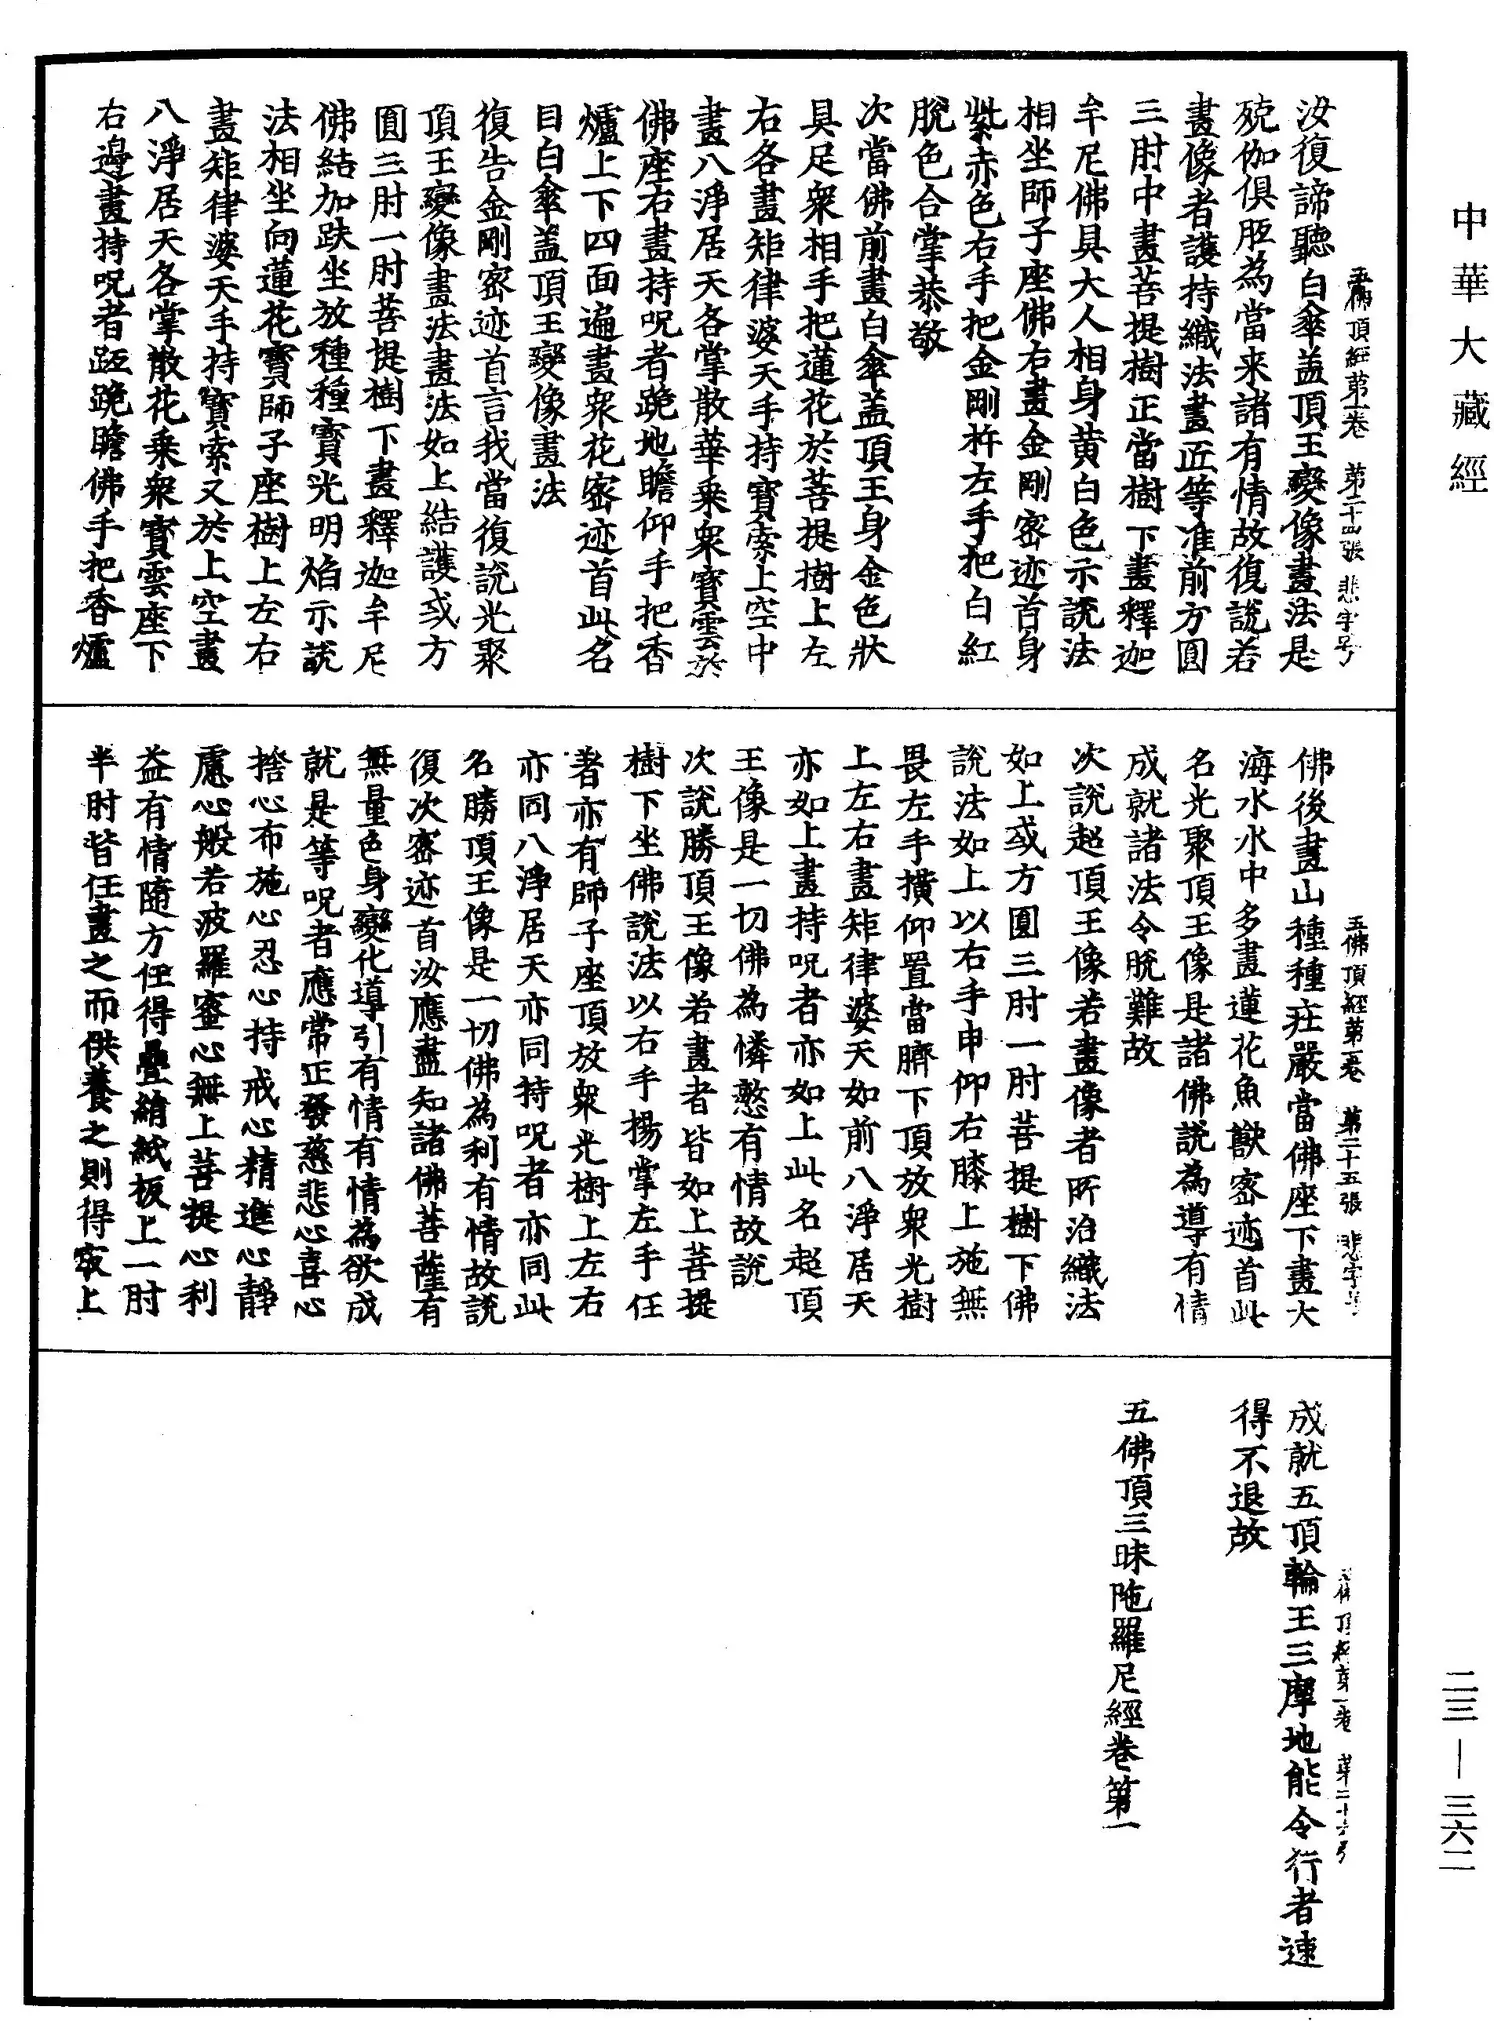 中華大藏經
五佛頂經第一卷 第二十四張 悲字号
汝復諦聽白傘盖頂王變像畫法是
殑伽俱胝為當来諸有情故復說若
畫像者護持織法畫匠等准前方圓
三肘中畫菩提樹正當樹下畫釋迦
牟尼佛具大人相身黄白色示說法
相坐師子座佛右畫金剛密迹首身
紫赤色右手把金剛杵左手把白紅
脫色合掌恭敬
次當佛前畫白傘盖頂王身金色狀
具足衆相手把蓮花於菩提樹上左
右各畫矩律婆天手持寶索上空中
畫八淨居天各掌散華乗衆寶雲於
佛座右畫持呪者跪地瞻仰手把香
爐上下四面遍畫衆花密迹首此名
目白傘盖頂王變像畫法
復告金剛密迹首言我當復說光聚
頂王變像畫法畫法如上結護或方
圓三肘一肘菩提樹下畫釋迦牟尼
佛結加趺坐放種種寶光明焰示說
法相坐向蓮花寶師子座樹上左右
畫矩律婆天手持寶索又於上空畫
八淨居天各掌散花乗衆寶雲座下
右邊畫持呪者𨁝跪瞻佛手把香爐
五佛頂經第一卷 第二十五張 悲字号
佛後畫山種種莊嚴當佛座下畫大
海水水中多畫蓮花魚獸密迹首此
名光聚頂王像是諸佛說為導有情
成就諸法令脫難故
次說超頂王像若畫像者所治織法
如上或方圓三肘一肘菩提樹下佛
說法如上以右手申仰右膝上施無
畏左手撗仰置當臍下頂放衆光樹
上左右畫矩律婆天如前八淨居天
亦如上畫持呪者亦如上此名超頂
王像是一切佛為憐愍有情故說
次說勝頂王像若畫者皆如上菩提
樹下坐佛說法以右手揚掌左手任
著亦有師子座頂放衆光樹上左右
亦同八淨居天亦同持呪者亦同此
名勝頂王像是一切佛為利有情故說
復次密迹首汝應盡知諸佛菩薩有
無量色身變化導引有情有情為欲成
就是等呪者應常正發慈悲心喜心
捨心布施心忍心持戒心精進心靜
慮心般若波羅蜜心無上菩提心利
益有情隨方任得疊絹紙板上一肘
半肘皆任畫之而供養之則得㝡上
五佛頂經第一卷 第二十六張
成就五頂輪王三摩地能令行者速
得不退故
五佛頂三昧陁羅尼經卷第一
二三—三六二